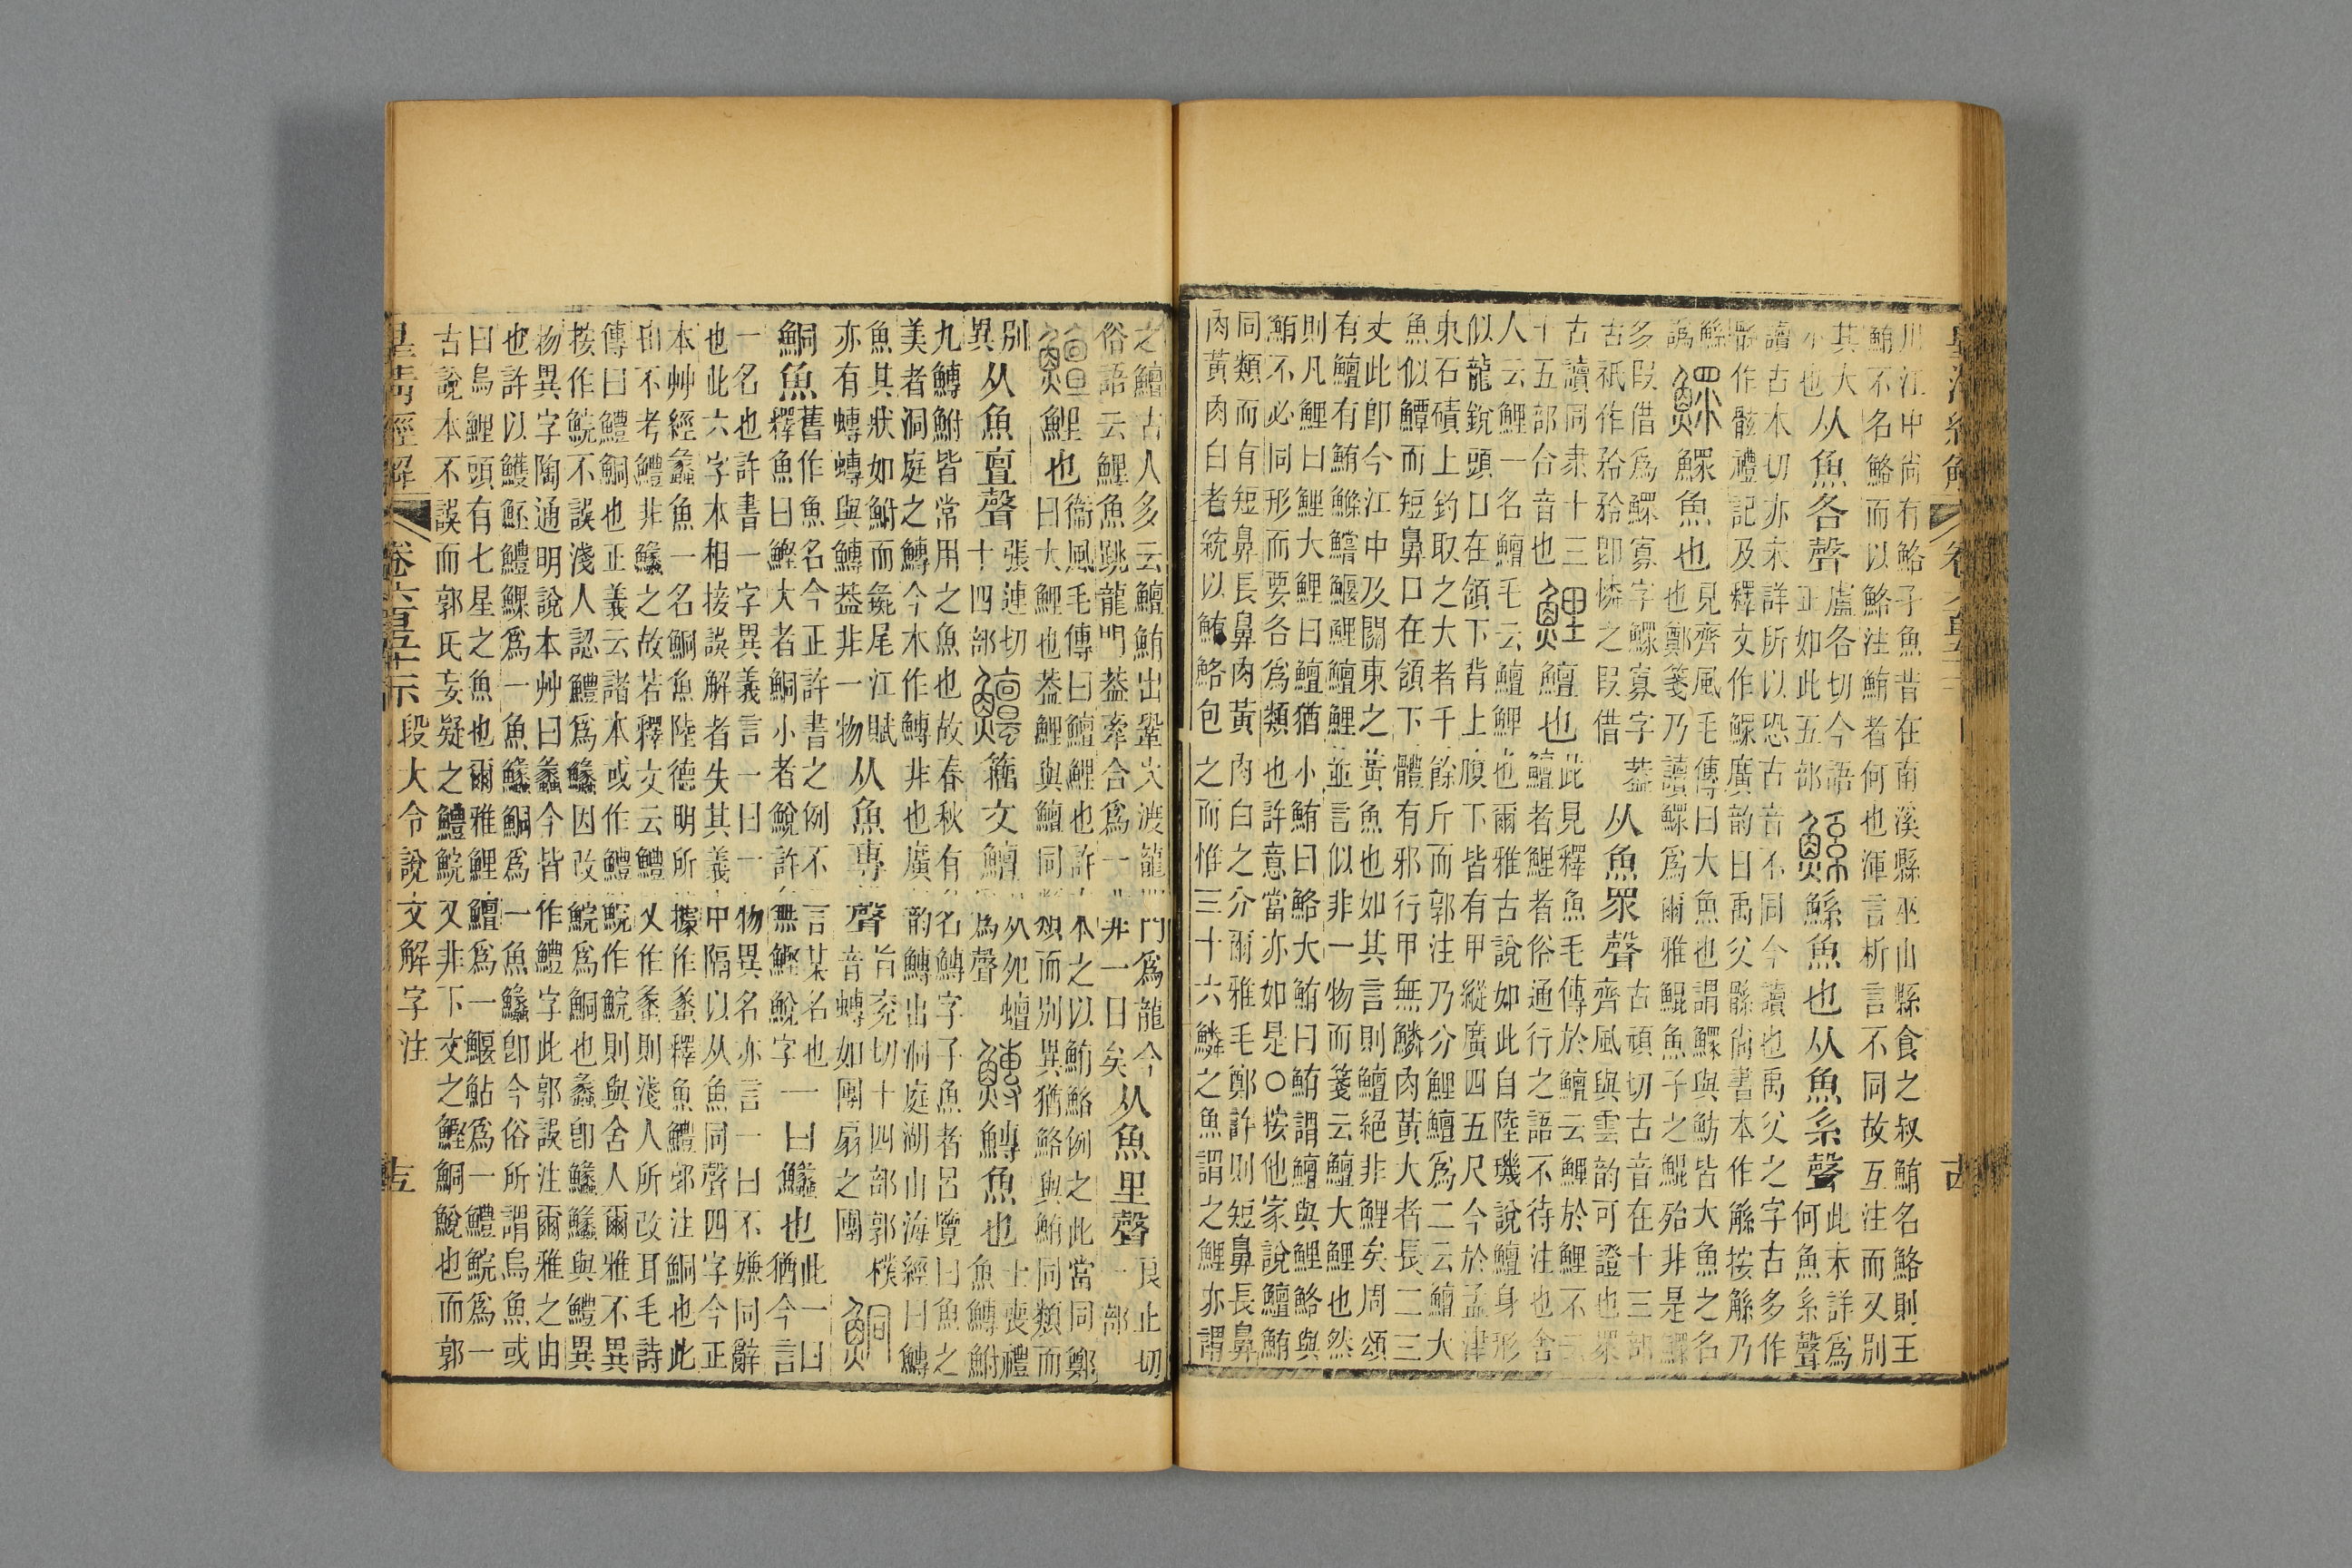 皇淸經解 卷六百五十一 古
川江中尚有鮥子魚昔在南溪縣巫山縣食之叔鮪名鮥則王
鮪不名鮥而以鮥注鮪者何也渾言析言不同故互注而又別
其大小也从魚各聲盧各切今語正如此五部鯀鯀魚也从魚系聲此未詳爲何魚系聲
讀古本切亦未詳所以恐古音不同今讀也禹父之字古多作
骽作骸禮記及釋文作鰥廣韵曰禹父鯀尚書本作鮌按鮌乃
鯀譌鰥鰥魚也見齊風毛傳曰大魚也謂鰥與魴皆大魚之名也鄭箋乃讀鰥爲爾雅鯤魚子之鯤殆非是鰥
多叚借爲鰥寡字鰥寡字蓋古祇作矜矜卽憐之叚借从魚眔聲古頑切古音在十三部齊風與雲韵可證也眔
古讀同隶十三十五部合音也鯉鱣也此見釋魚毛傳於鱣云鯉於鯉不云鱣者鯉者俗通行之語不待注也舍
人云鯉一名鱣毛云鱣鯉也爾雅古說如此自陸璣說鱣身形
似龍銳頭口在頷下背上腹下皆有甲縱廣四五尺今於孟津
東石磧上釣取之大者千餘斤而郭注乃分鯉鱣爲二云鱣大
魚似鱏而短鼻口在頷下體有邪行甲無鱗肉黃大者長二三
丈此卽今江中及關東之黃魚也如其言則鱣絕非鯉矣周頌
有鱣有鮪鰷鱨鰋鯉鱣鯉並言似非一物而箋云鱣大鯉也然
則凡鯉曰鯉大鯉曰鱣猶小鮪曰鮥大鮪曰鮪謂鱣與鯉鮥與
鮪不必同形而要各爲類也許意當亦如是○按他家說鱣鮪
同類而有短鼻長鼻肉黃肉白之分爾雅毛鄭許則短鼻長鼻
肉黃肉白者統以鮪鮥包之而惟三十六鱗之魚謂之鯉亦謂
之鱣古人多云鱣鮪出鞏穴渡龍門爲龍今俗語云鯉魚跳龍門蓋牽合爲一非一日矣从魚里聲良止切一部
鱣鯉也衞風毛傳曰鱣鯉也許本之以鮪鮥例之此當同鄭曰大鯉也蓋鯉與鱣同類而別異猶鮥與鮪同類而
別異从魚亶聲張連切十四部籒文鱣爲聲鱄鱄魚也士喪禮魚鱄鮒
九鱄鮒皆常用之魚也故春秋有名鱄字子魚者呂覽曰魚之
美者洞庭之鱄今本作鱄非也廣韵鱄出洞庭湖山海經曰鱄
魚其狀如鮒而彘尾江賦亦有蟤蟤與鱄蓋非一物从魚專聲旨兗切十四部郭璞音蟤如團扇之團鮦
鮦魚舊作魚名今正許書之例不言某名也釋魚曰鰹大者鮦小者鮵許無鰹鮵字一曰鱶也此一曰猶今言
一名也許書一字異義言一曰一物異名亦言一曰不嫌同辭
也此六字本相接誤解者失其義中隔以从魚同聲四字今正
本艸經蠡魚一名鮦魚陸德明所據作蠡釋魚鱧郭注鮦也此
由不考鱧非鱶之故若釋文云鱧又作蠡則淺人所改耳毛詩
傳曰鱧鮦也正義云諸本或作鱧鯇作鯇則與舍人爾雅不異
按作鯇不誤淺人認鱧爲鱶因改鯇爲鮦也蠡卽鱶鱶與鱧異
物異字陶通明說本艸曰蠡今皆作鱧字此郭誤注爾雅之由
也許以鱯䰲鱧鰥爲一魚鱶鮦爲一魚鱶卽今俗所謂烏魚或
曰烏鯉頭有七星之魚也爾雅鯉鱣爲一鰋鮎爲一鱧鯇爲一
古說本不誤而郭氏妄疑之鱧鯇又非下文之鰹鮦鮵也而郭
皇淸經解 卷六百五十一 段大令說文解字注